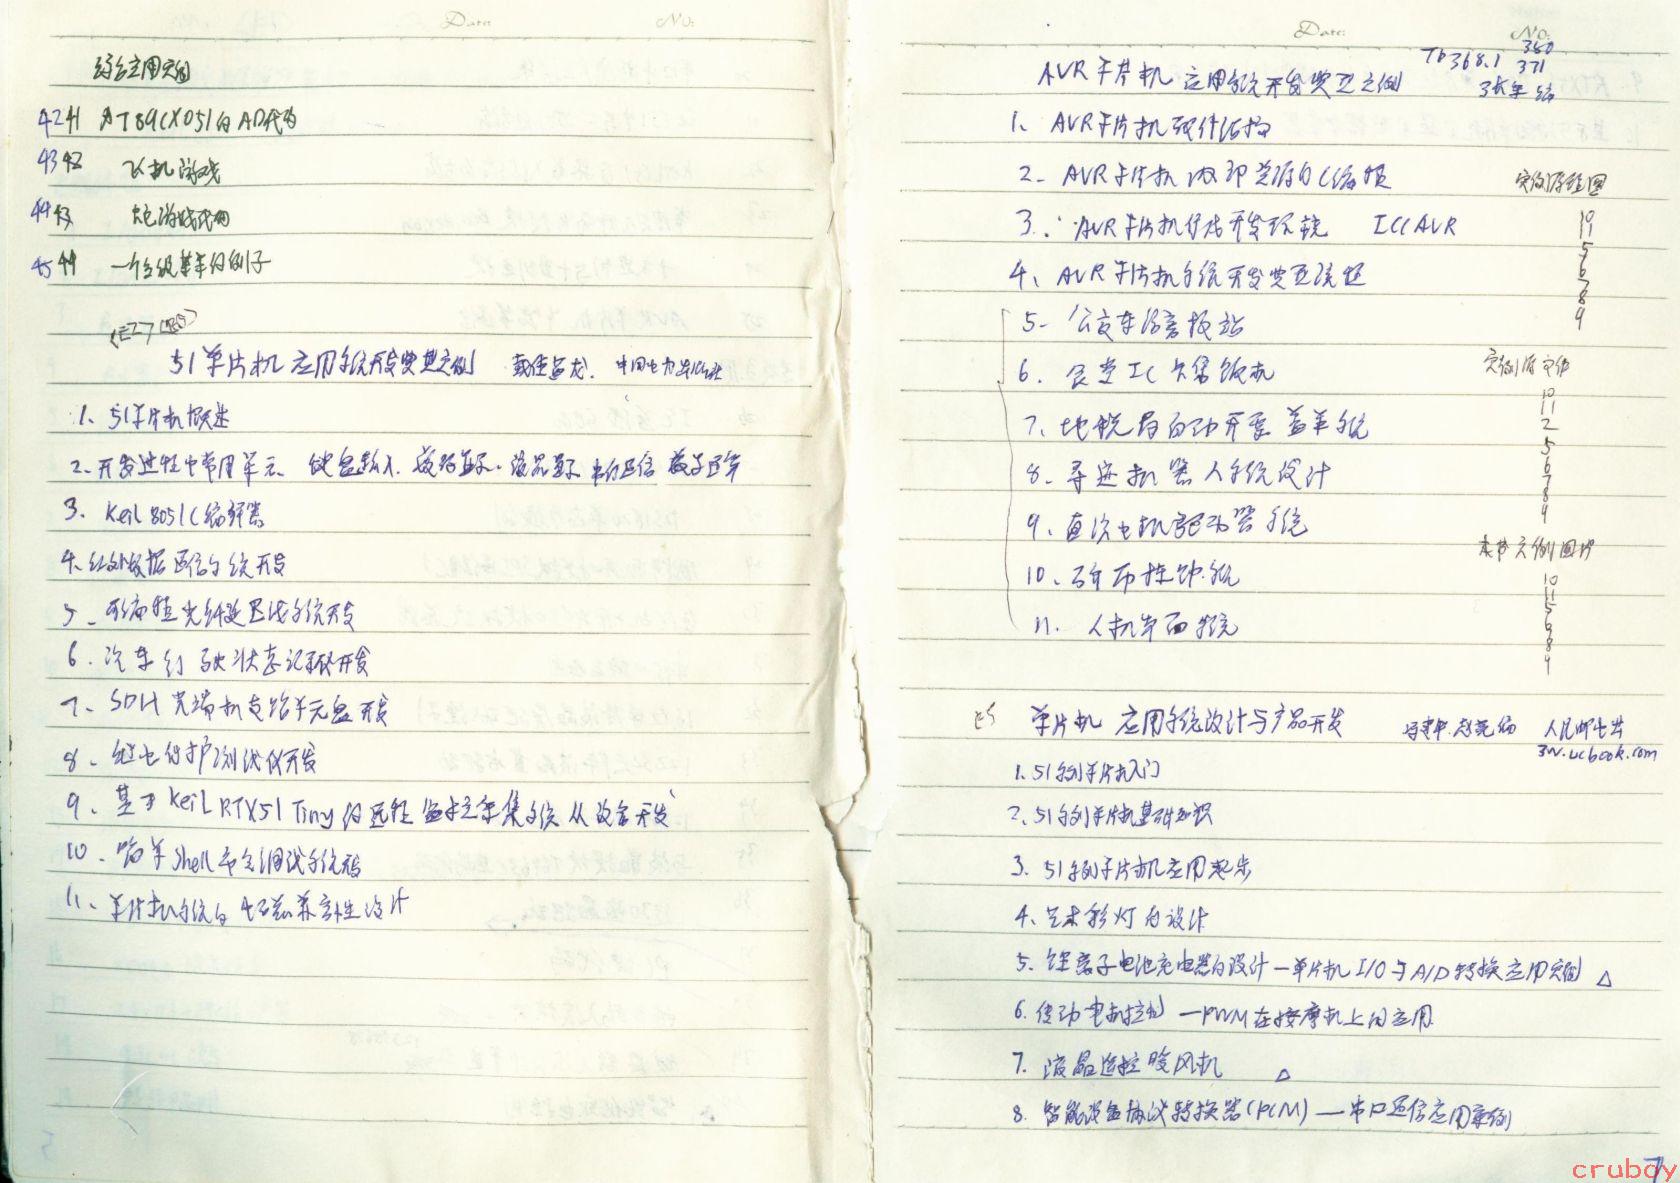 Date: No:
综合应用实例
42 41 AT89CX051的AD代码
43 42 飞机游戏
44 43 蛇游戏代码
45 44 一个至级菜单的例子
51单片机应用系统开发典型实例 戴佳 中国电力出版社
1、51单片机概述
2、开发过程中常用单元 键盘输入、数码显示、液晶显示 串行通信
3、Keil 8051C编译器
4、红外数据通信系统开发
5、可编程光纤延迟线系统开发
6、汽车行驶状态记录开发
7、SDH光端机支路单元盘开发
8、继电保护测试仪开发
9、基于Keil RTX51 Tiny的远程监控采集系统从设备开发
10、简单Shell命令调试系统
11、单片机系统的电磁兼容性设计
Date: No:
AVR单片机应用系统开发典型实例
TP368.1
380
371
1、AVR单片机硬件结构
2、AVR单片机内部资源的C编程
3、AVR单片机仿真开发环境 ICCAVR
4、AVR单片机系统开发典型流程
5、公交车语音报站
6、食堂IC卡售饭机
7、地铁自动开票系统
8、寻迹机器人系统设计
9、直流电机驱动系统
10、
11、人机界面系统
实例原理图
10
11
5
6
7
8
9
10
11
2
5
6
7
8
9
10
11
5
6
8
9
单片机应用系统设计与产品开发 人民邮电出
3w.ucbook.com
1、51系列单片机入门
2、51系列单片机基础知识
3、51系列单片机应用起步
4、艺术彩灯的设计
5、锂离子电池充电器的设计—单片机I/O与A/D转换应用实例 △
6、传动电机控制—PWM在按摩机上的应用
7、液晶遥控暖风机 △
8、智能设备协议转换器(PCM)—串口通信应用案例
7
cruboy